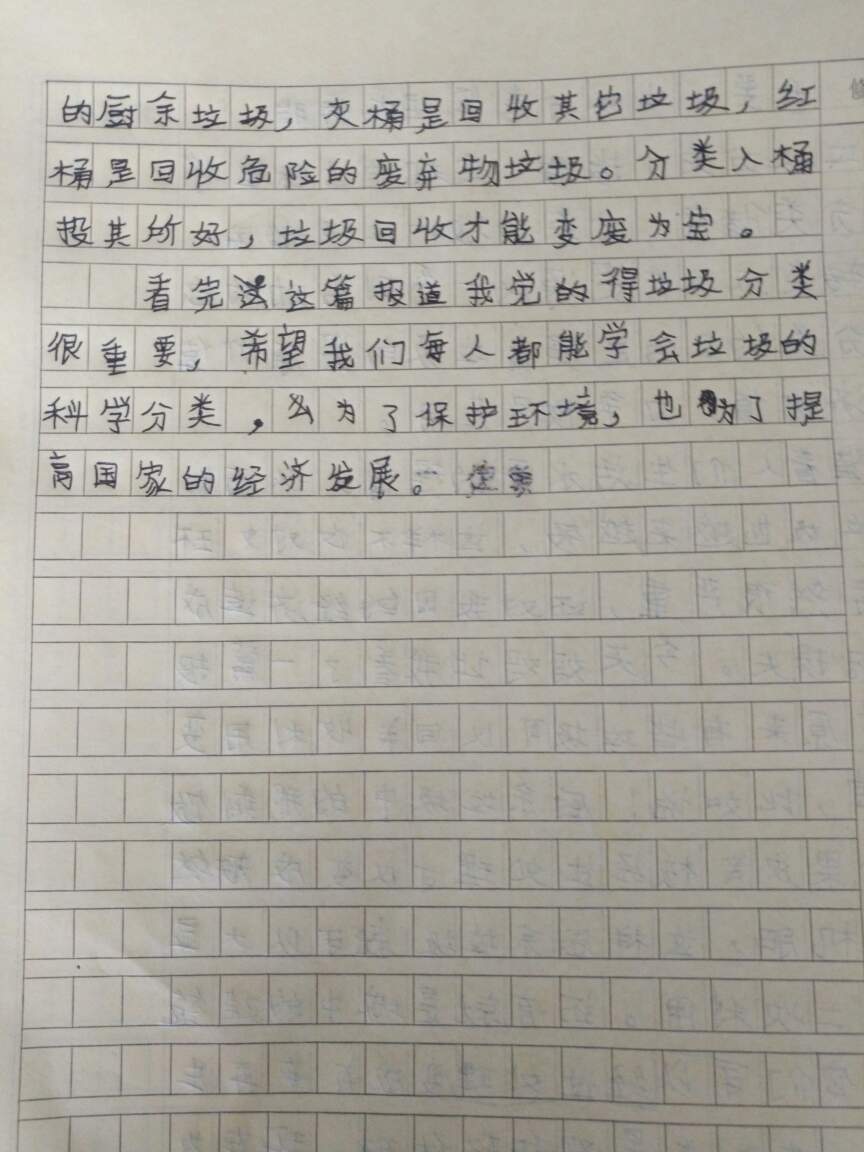 的厨余垃圾，灰桶是回收其它垃圾，红
桶是回收危险的废弃物垃圾。分类入桶
投其所好，垃圾回收才能变废为宝。
看完这篇报道我觉的得垃圾分类
很重要，希望我们每人都能学会垃圾的
科学分类，为了保护环境，也为了提
高国家的经济发展。